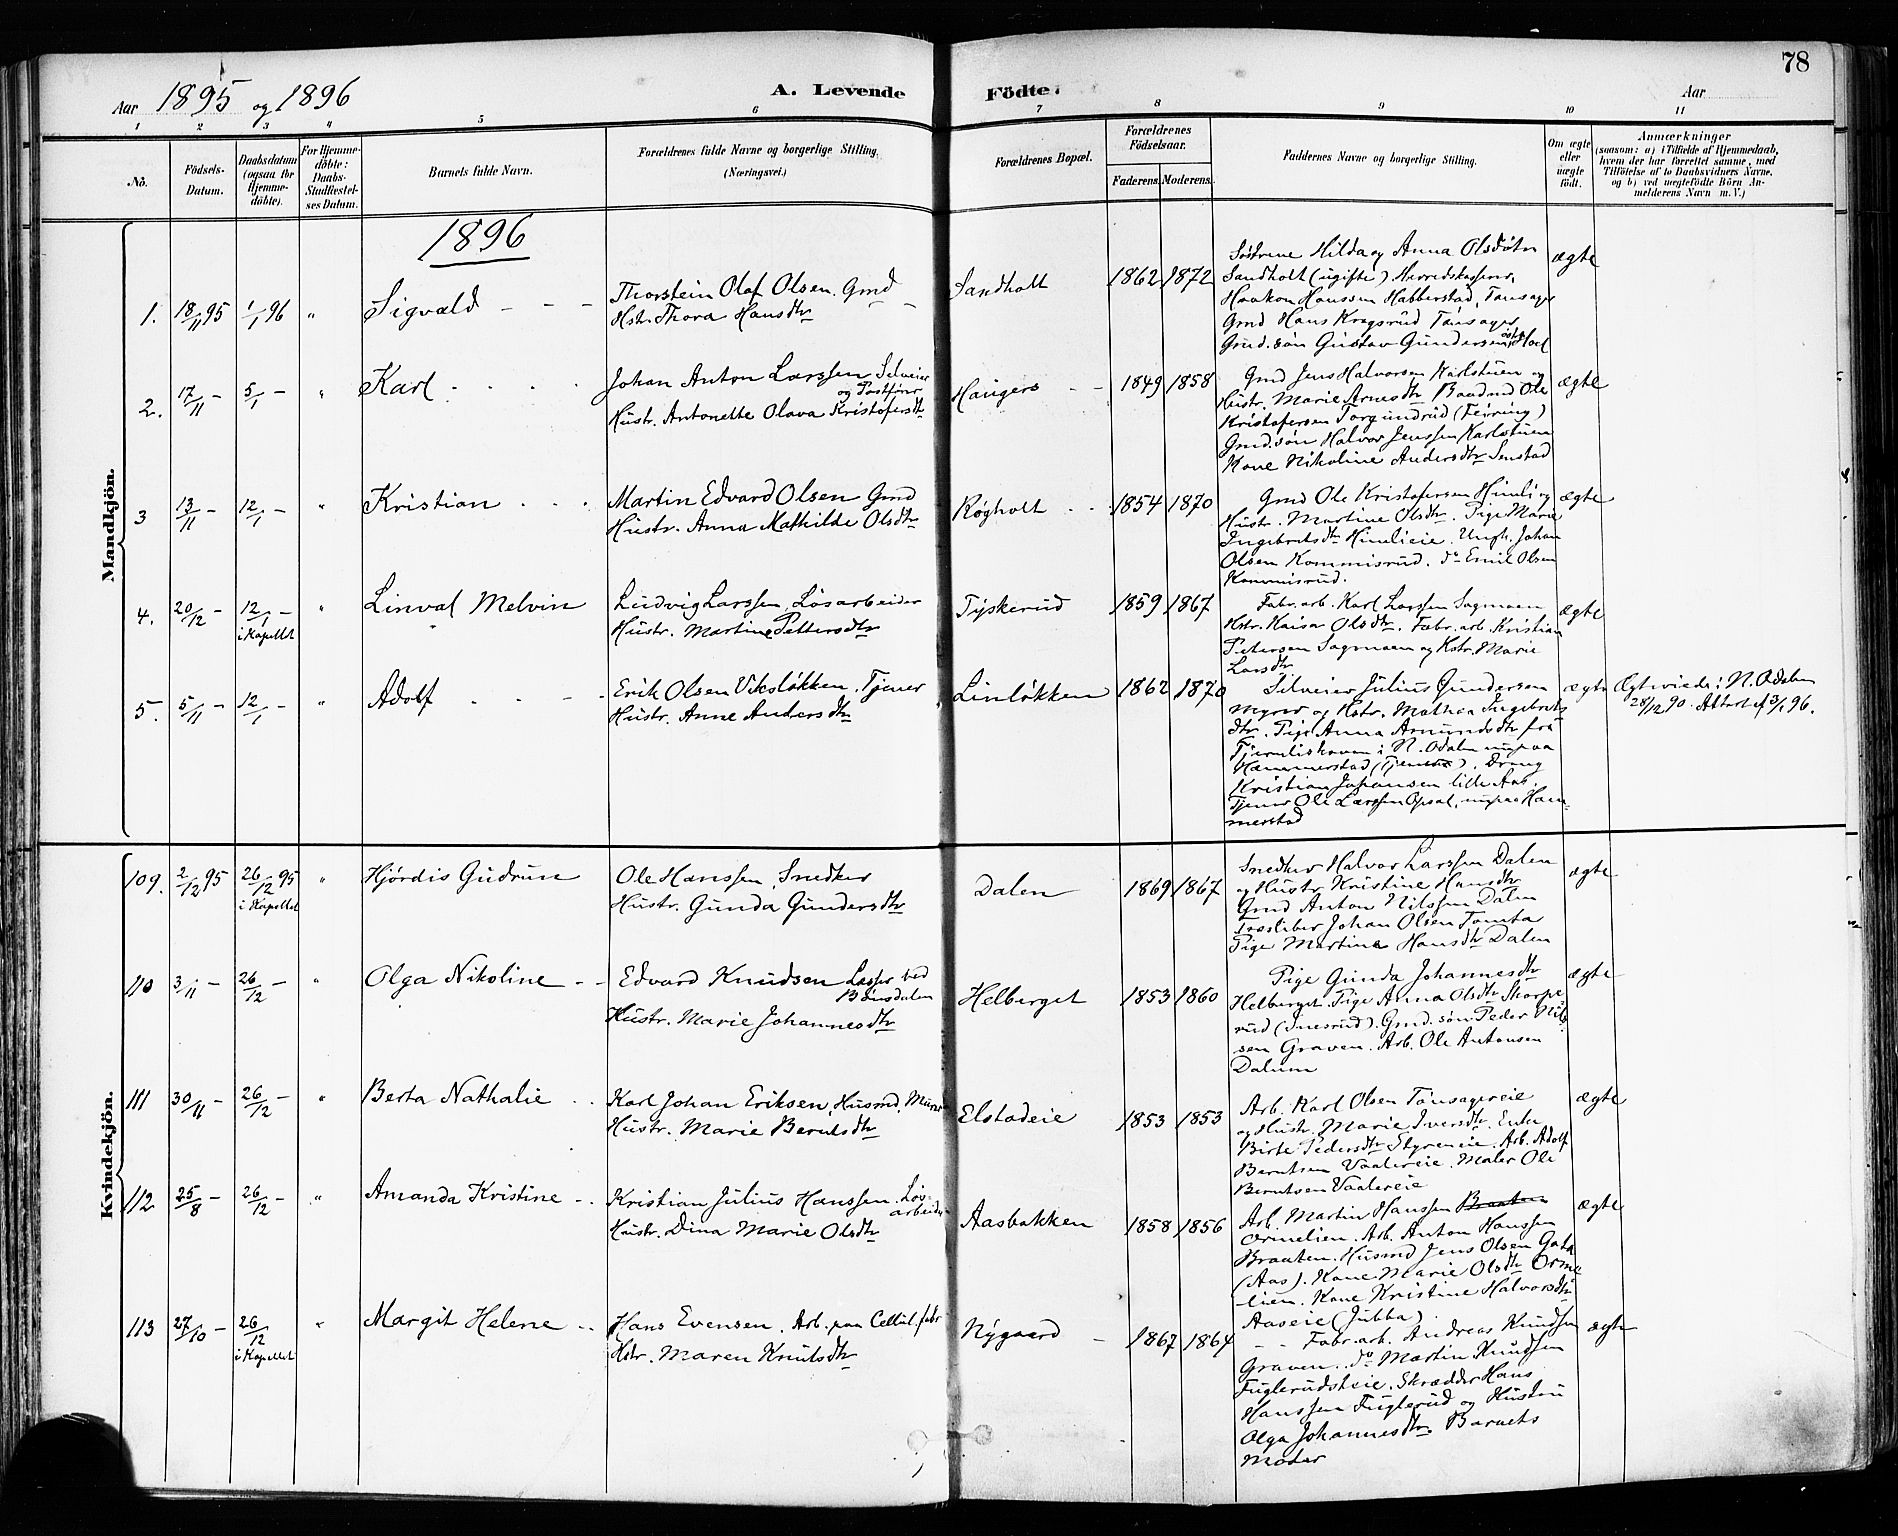 78
Aar 1895 og 1896
A. Levende Födte.
Aar
1 2 3 4 5 6 7 8 9 10 11
No.
Födsels-
Datum.
Daabsdatum
(ogsaa for
Hjemme-
döbte).
For Hjemme-
döbte:
Daabs-
Stadfæstel-
ses Datum.
Barnets fulde Navn.
Forældrenes fulde Navne og borgerlige Stilling.
(Næringsvei.)
Forældrenes Bopæl.
Forældrenes
Födselsaar.
Faderens. Moderens.
Faddernes Navne og borgerlige Stilling.
Om ægte
eller
uægte
födt.
Anmærkninger
(saasom: a) i Tilfælde af Hjemmedaab,
hvem der har forrettet samme, med
Tilföielse af to Daabsvidners Navne,
og b) ved uægtefödte Börn An-
melderens Navn m. V.)
Mandkjön.
1896
1. 18/11 95 1/1 96 " Sigvald - - -
Thorstein Olaf Olsen. Gmd
Hstr. Thora Hansdtr
Sandholt 1862 1872
Søstrene Hilda og Anna Olsdøtre
Sandholt (ugifte) Herredskasserer
Haakon Hanssen Habberstad, Tønsager
Gmd Hans Krogsrud Tønsager
Gmd.søn Gustav Gundersen
ægte
2. 17/11 - 5/1 - " Karl
Johan Anton Larssen Selveier
og Postfører
Hustr. Antonette Olava Kristofersdtr
Haugers - - 1849 1858
Gmd Jens Halvorsen Karlstuen og
Hustr. Marie Arnesdtr Baadmd Ole
Kristofersen Torgundrud (Feiring)
Gmd.søn Halvor Jenssen Karlstuen
Kone Nikoline Andersdtr Senstad
ægte
3 13/11 - 12/1 - " Kristian
Martin Edvard Olsen Gmd
Hustr. Anna Mathilde Olsdtr
Røgholt 1854 1870
Gmd Ole Kristofersen Himli og
Hustr. Martine Olsdtr. Pige Marie
Ingebretsdtr Himlieie. Ungk. Johan
Olsen Kommisrud. do Emil Olsen
Kommisrud.
ægte
4. 20/12 - 12/1 - i Kapellet " Linval Melvin
Ludvig Larssen, Løsarbeider
Hustr. Martine Pettersdtr
Tyskerud 1859 1867
Fabr.arb. Karl Larssen Sagmoen
Hstr. Kaisa Olsdtr. Fabr.arb. Kristian
Petersen Sagmoen og Hstr. Marie
Larsdtr
ægte
5. 5/11 - 12/1 - " Adolf
Erik Olsen Viksløkken. Tjener
Hustr. Anne Andersdtr
Linløkken 1862 1870
Selveier Julius Gundersen
Myrer og Hstr. Mathea Ingebrets
dtr. Pige Anna Amundsdtr fra
i N. Odalen nu paa
Hammerstad (Tjener). Dreng
Kristian Johansen lille Aas.
Tjener Ole Larssen Opsal, nu paa Ham-
merstad
ægte
Ægteviede i N. Odalen
28/12 90. Attest af 3/1 96.
Kvindekjön.
109. 2/12 95 26/12 95 i Kapellet " Hjørdis Gudrun
Ole Hanssen, Snedker
Hustr. Gunda Gundersdtr
Dalen 1869 1867
Snedker Halvor Larssen Dalen
og Hustr. Kristine Hansdtr
Gmd Anton Nilssen Dalen
Træsliber Johan Olsen Tomta
Pige Martina Hansdtr Dalen
ægte
110 3/11 - 26/12 - " Olga Nikoline - -
Edvard Knudsen Lasser ved
Bønsdalen
Hustr. Marie Johannesdtr
Helberget 1853 1860
Pige Gunda Johannesdtr
Helberget. Pige Anna Olsdtr Skorpe-
rud (Inesrud). Gmd.søn Peder Nils-
sen Graven. Arb. Ole Antonsen
Dalum
ægte
111 30/11 - 26/12 - " Berta Nathalie
Karl Johan Eriksen, Husmd. Murer
Hustr. Marie Berntsdtr
Elstadeie 1853 1853
Arb. Karl Olsen Tønsagereie
og Hustr. Marie Iversdtr. Enke
Birte Pedersdtr Styreneie. Arb. Adolf
Berntsen Vaalereie. Maler Ole
Berntsen Vaalereie
ægte
112 25/8 - 26/12 - " Amanda Kristine - -
Kristian Julius Hanssen. Løs-
arbeider
Hustr. Dina Marie Olsdtr
Aasbakken 1858 1856
Arb. Martin Hanssen Braaten
Ormelien. Arb. Anton Hanssen
Braaten. Husmd Jens Olsen Gata
(Aas). Kone Marie Olsdtr Orme
lien. Kone Kristine Halvorsdtr
Aaseie (Jubba)
ægte
113 27/10 - 26/12 i Kapellet " Margit Helene - -
Hans Evensen. Arb. paa Cellul.fabr
Hstr. Maren Knutsdtr
Nygaard - 1867 1864
Fabr.arb. Andreas Knudsen
Graven. do Martin Knudsen
Fuglerudsteie. Skrædder Hans
Hanssen Fuglerud og Hustru
Olga Johannesdtr. Barnets
Moder
ægte